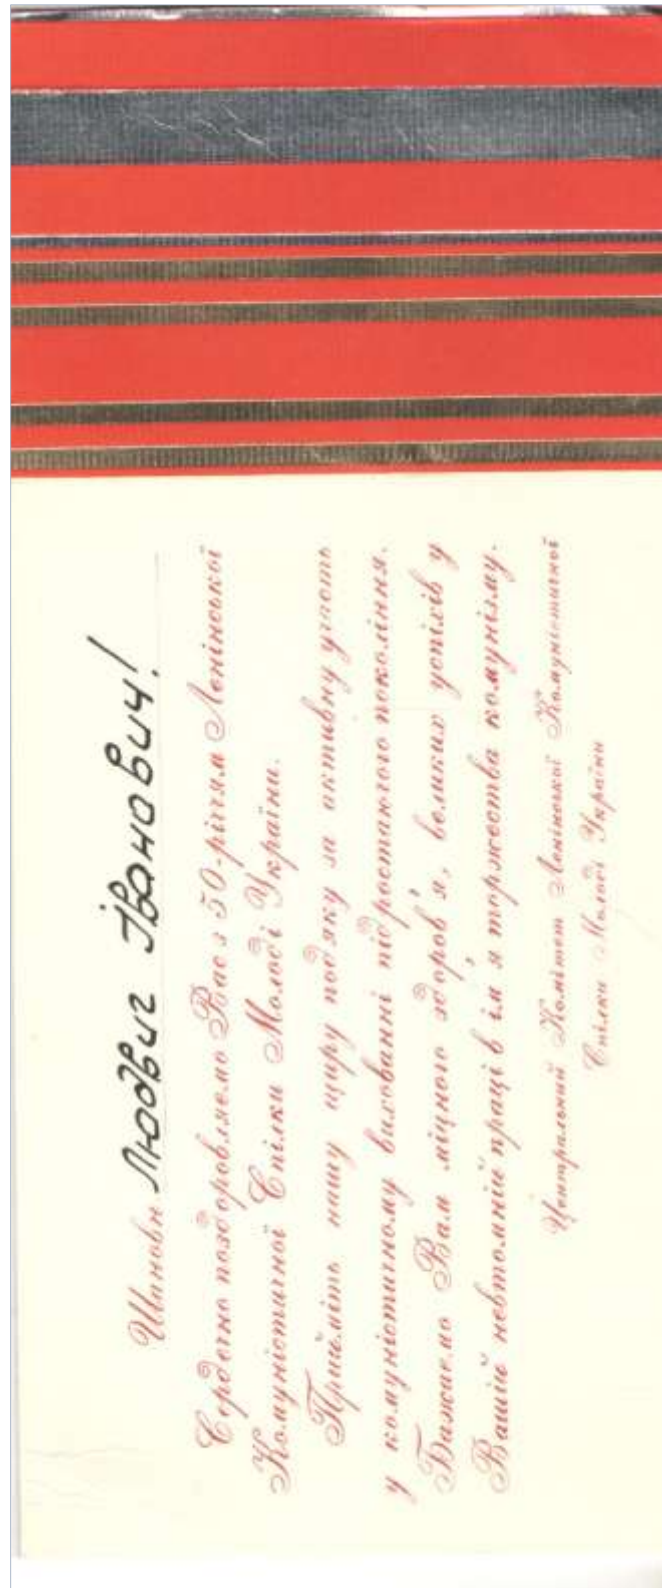 Шановн Людвиг Іванович!
Сердечно поздоровляємо Вас з 50-річчям Ленінської
Комуністичної Спілки Молоді України.
Прийміть нашу щиру подяку за активну участь
у комуністичному вихованні підростаючого покоління.
Бажаємо Вам міцного здоров'я, великих успіхів у
Вашій невтомній праці в ім'я торжества комунізму.
Центральний Комітет Ленінської Комуністичної
Спілки Молоді України